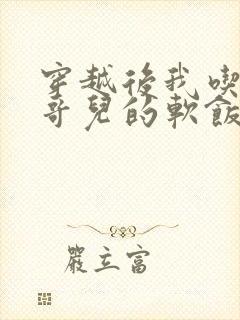 穿越後我喫
哥兒的軟飯
嚴立富